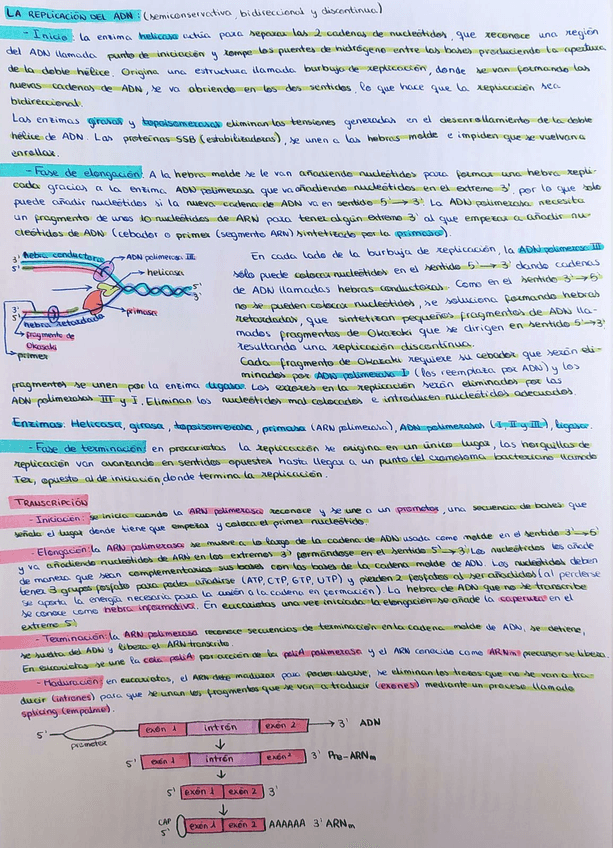 LA REPLICACIÓN DEL ADN: (semiconservativa, bidireccional y discontinua)
- Inicio: la enzima helicasa actúa para separar las 2 cadenas de nucleótidos, que reconoce una región
del ADN llamada punto de iniciación y rompe los puentes de hidrógeno entre las bases produciendo la apertura
de la doble hélice. Origina una estructura llamada burbuja de replicación, donde se van formando las
nuevas cadenas de ADN, se va abriendo en los dos sentidos, lo que hace que la replicación sea
bidireccional.
Las enzimas girasas y topoisomerasas eliminan las tensiones generadas en el desenrollamiento de la doble
hélice de ADN. Las proteínas SSB (estabilizadoras), se unen a las hebras molde e impiden que se vuelvan a
enrollar.
- Fase de elongación: A la hebra molde se le van añadiendo nucleótidos para formar una hebra repli-
cada gracias a la enzima ADN polimerasa que va añadiendo nucleótidos en el extremo 3', por lo que solo
puede añadir nucleótidos si la nueva cadena de ADN va en sentido 5' → 3'. La ADN polimerasa necesita
un fragmento de unos 10 nucleótidos de ARN para tener algún extremo 3' al que empezar a añadir nu-
cleótidos de ADN (cebador o primer (segmento ARN) sintetizado por la primasa).
3' hebra conductora
5'
ADN polimerasa III
helicasa
5'
3'
primasa
3'
5'
hebra retardada
fragmento de
Okasaki
primer
En cada lado de la burbuja de replicación, la ADN polimerasa III
sólo puede colocar nucleótidos en el sentido 5' → 3' dando cadenas
de ADN llamadas hebras conductoras. Como en el sentido 3' → 5'
no se pueden colocar nucleótidos, se soluciona formando hebras
retardadas, que sintetizan pequeños fragmentos de ADN lla-
mados fragmentos de Okazaki que se dirigen en sentido 5' → 3'
resultando una replicación discontinua.
Cada fragmento de Okazaki requiere su cebador que serán eli-
minados por ADN polimerasa I (los reemplaza por ADN) y los
fragmentos se unen por la enzima ligasa. Los errores en la replicación serán eliminados por las
ADN polimerasas III y I. Eliminan los nucleótidos mal colocados e introducen nucleótidos adecuados.
Enzimas: Helicasa, girasa, topoisomerasa, primasa (ARN polimerasa), ADN polimerasas (I, II y III), ligasa.
- Fase de terminación: en procariotas la replicación se origina en un único lugar, las horquillas de
replicación van avanzando en sentidos opuestos hasta llegar a un punto del cromosoma bacteriano llamado
Ter, opuesto al de iniciación donde termina la replicación.
TRANSCRIPCIÓN
- Iniciación: se inicia cuando la ARN polimerasa reconoce y se une a un promotor, una secuencia de bases que
señala el lugar donde tiene que empezar y coloca el primer nucleótido.
- Elongación: la ARN polimerasa se mueve a lo largo de la cadena de ADN usada como molde en el sentido 3' → 5'
y va añadiendo nucleótidos de ARN en los extremos 3' formándose en el sentido 5' → 3'. Los nucleótidos los añade
de manera que sean complementarias sus bases con las bases de la cadena molde de ADN. Los nucleótidos deben
tener 3 grupos fosfato para poder añadirse (ATP, CTP, GTP, UTP) y pierden 2 fosfatos al ser añadidos (al perderse
se aporta la energía necesaria para la unión a la cadena en formación). La hebra de ADN que no se transcribe
se conoce como hebra informativa. En eucariotas una vez iniciada la elongación se añade la caperuza en el
extremo 5'.
- Terminación: la ARN polimerasa reconoce secuencias de terminación en la cadena molde de ADN, se detiene,
se suelta del ADN y libera el ARN transcrito.
En eucariotas se une la cola poliA por acción de la poliA polimerasa y el ARN conocido como ARNm precursor se libera.
- Maduración: en eucariotas, el ARN debe madurar para poder usarse, se eliminan los trozos que no se van a tra-
ducir (intrones) para que se unan los fragmentos que se van a traducir (exones) mediante un proceso llamado
splicing (empalme).
5' promotor exón 1 intrón exón 2 → 3' ADN
5' exón 1 intrón exón 2 3' Pre-ARNm
5' exón 1 exón 2 3'
CAP
5' exón 1 exón 2 AAAAAA 3' ARNm